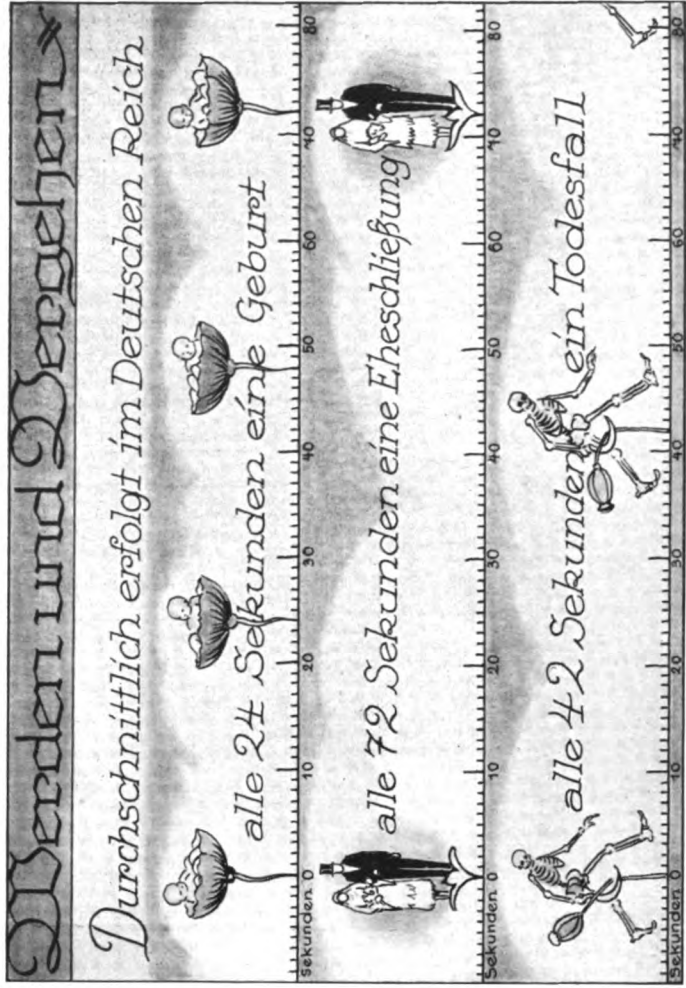 Werden und Vergehen
Durchschnittlich erfolgt im Deutschen Reich
alle 24 Sekunden eine Geburt
Sekunden 0 10 20 30 40 50 60 70 80
alle 72 Sekunden eine Eheschließung
Sekunden 0 10 20 30 40 50 60 70 80
alle 42 Sekunden ein Todesfall
Sekunden 0 10 20 30 40 50 60 70 80